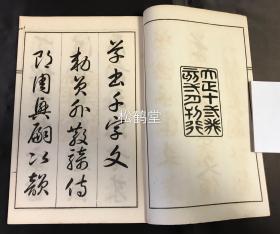 草書千字文
勅員外散騎侍
郎周興嗣次韻
松鹤堂